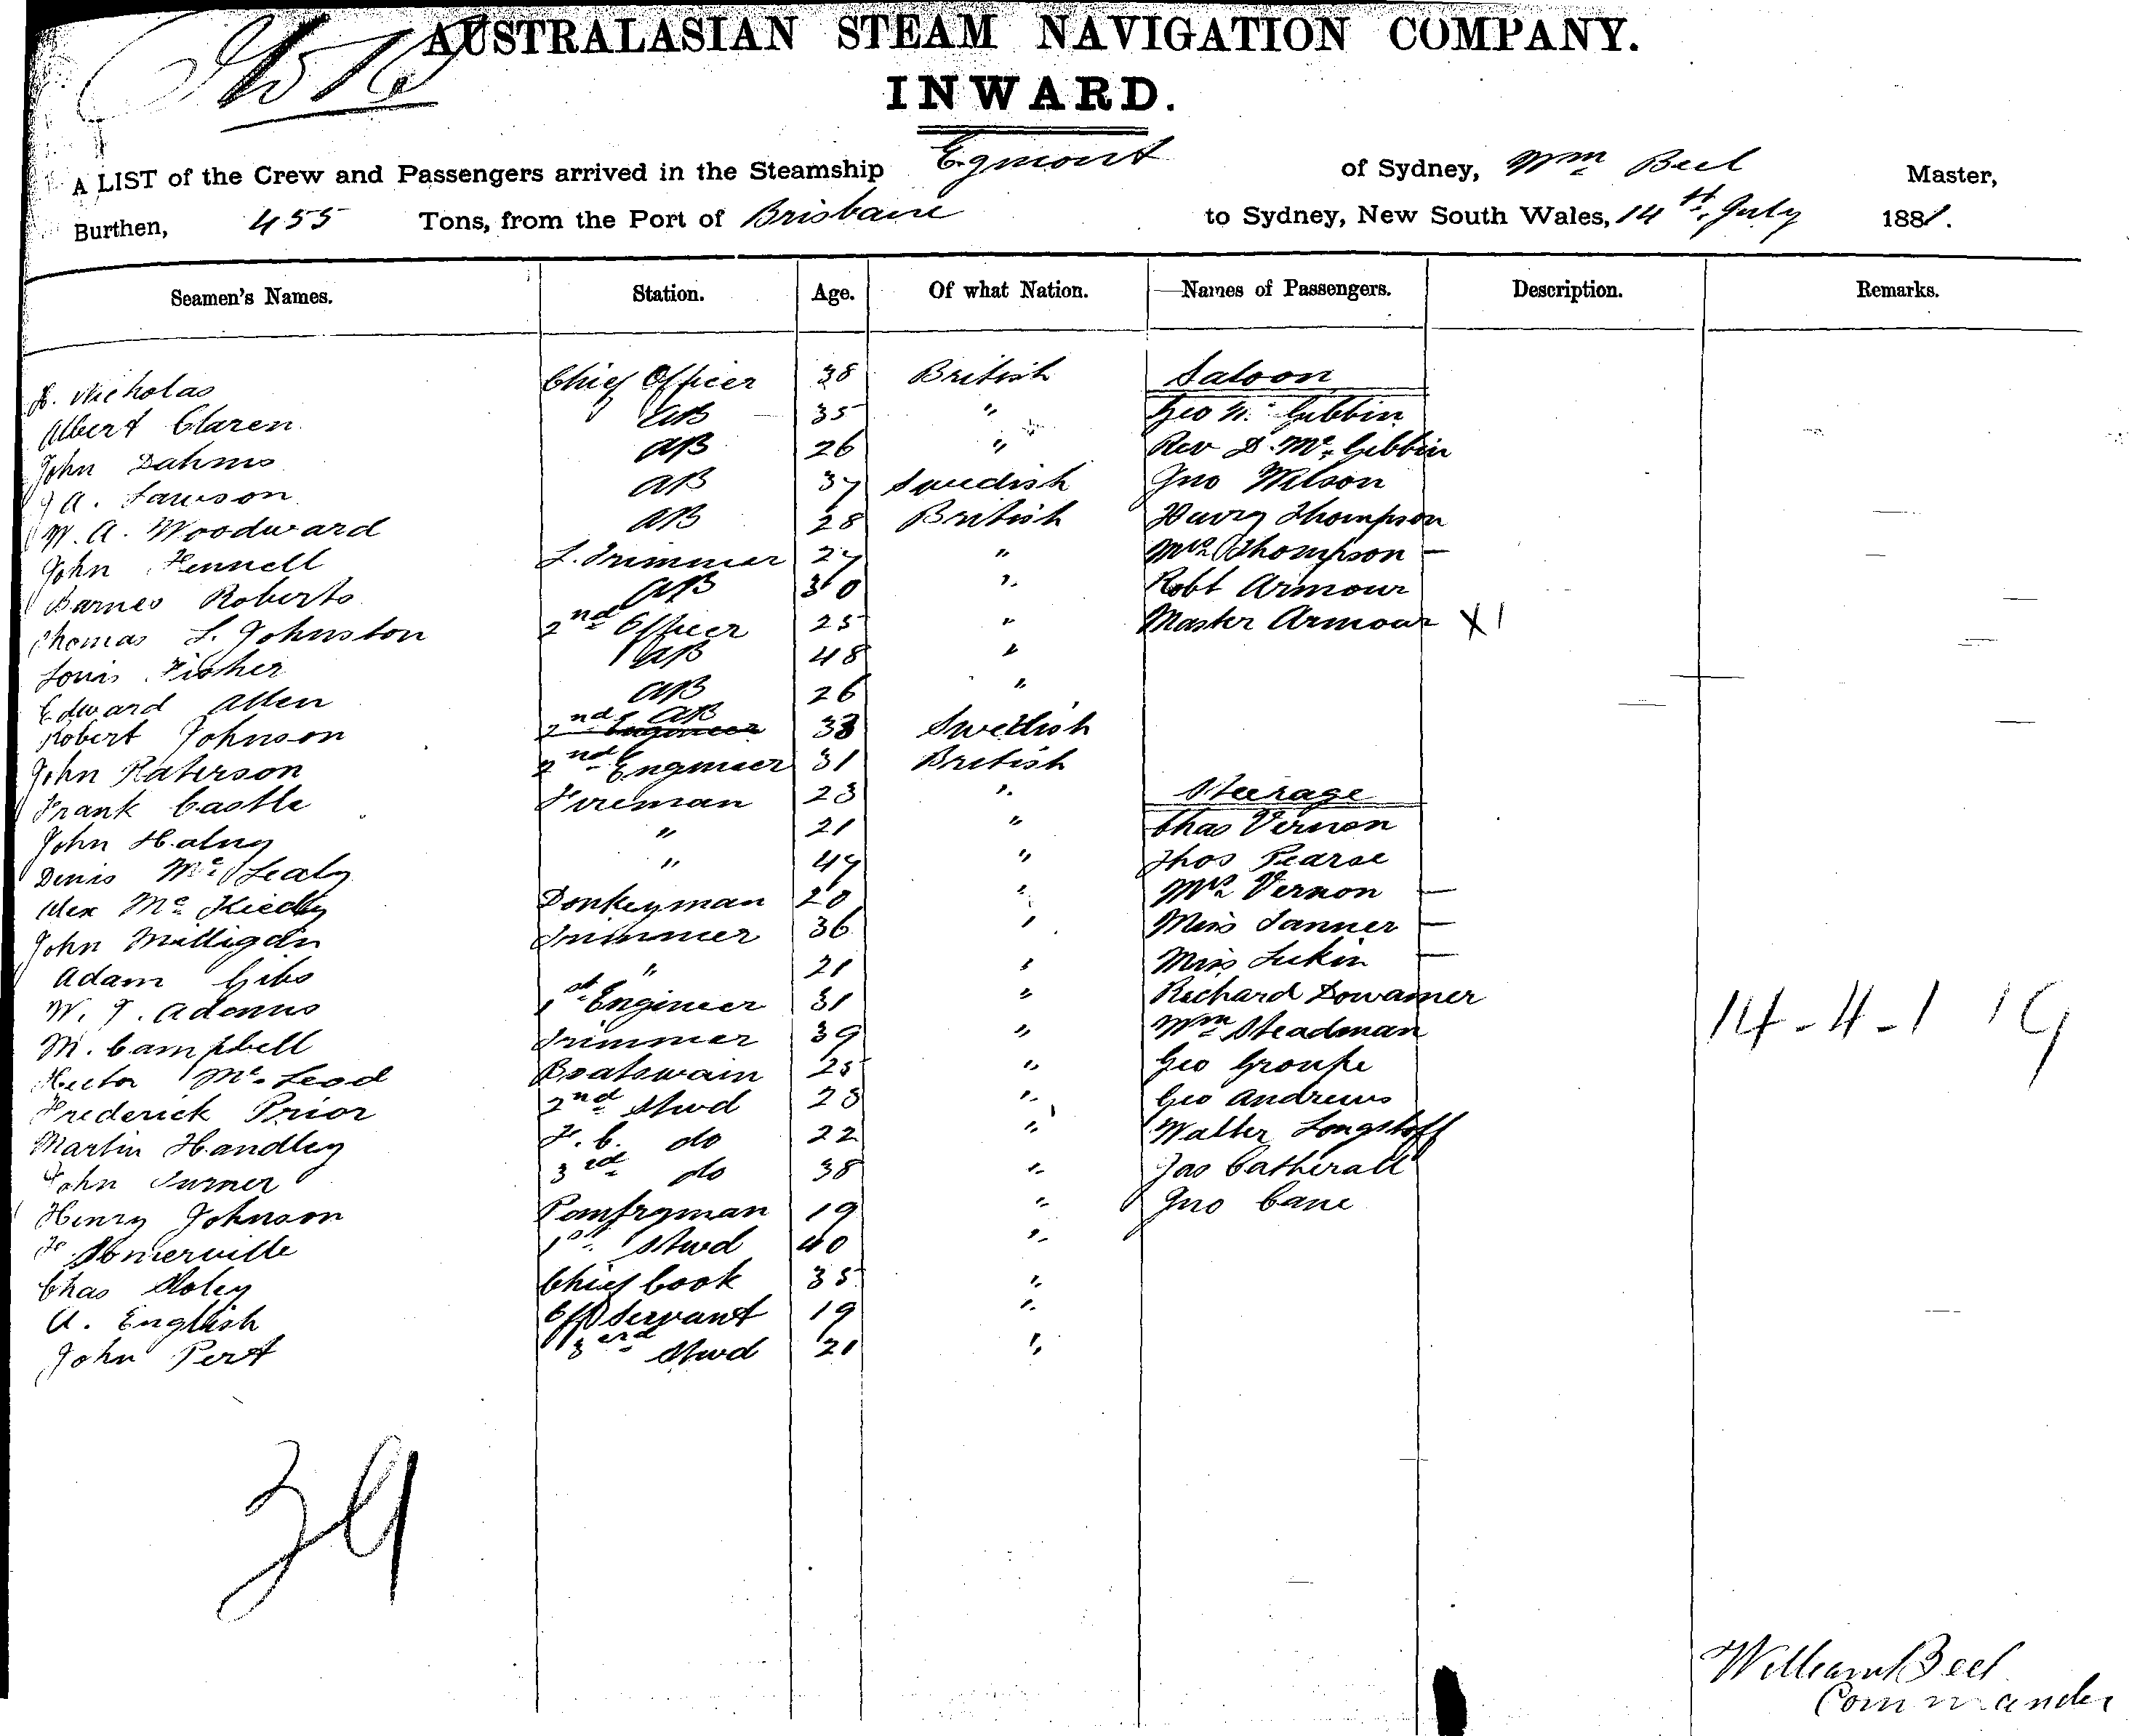 AUSTRALASIAN STEAM NAVIGATION COMPANY.
INWARD.
A LIST of the Crew and Passengers arrived in the Steamship Egmont of Sydney, Wm Beel Master,
Burthen, 455 Tons, from the Port of Brisbane to Sydney, New South Wales, 14th July 1881.
Seamen's Names. Station. Age. Of what Nation. Names of Passengers. Description. Remarks.
Nicholas Chief Officer 38 British Saloon
Albert Claren AB 35 " Geo Gibbin
John Dahms AB 26 " Rev D. Mc Gibbin
J A. Lawson AB 37 Swedish Jno Wilson
W. A. Woodward AB 28 British Henry Thompson
John Fennell L. Trimmer 27 " Mrs Thompson —
Barnes Roberts AB 30 " Robt Armour
Thomas L. Johnston 2nd Officer 25 " Master Armour X 1
Louis Fisher AB 48 "
Edward Allen AB 26 "
Robert Johnson 2nd Engineer AB 33 Swedish
John Paterson 2nd Engineer 31 British
Frank Castle Fireman 23 " Steerage
John " 21 " Chas Vernon
Denis Mc " 47 " Thos Pearse
Alex Mc Donkeyman 20 " Mrs Vernon —
John Milligan Trimmer 36 " Miss Tanner —
Adam Gibs " 21 " Miss Lukin —
W. J. Adams 1st Engineer 31 " Richard
M. Campbell Trimmer 39 " Wm Steadman
Hector Mc Leod Boatswain 25 " Geo Groupe
Frederick Prior 2nd Stwd 23 " Geo Andrews
Martin Handley F. C. do 22 " Walter Longstoff
John Turner 3rd do 38 " Jas Catherall
Henry Johnson Pantryman 19 " Jno Cane
F. Somerville 1st Stwd 40 "
Chas Chief Cook 35 "
A. English Off Servant 19 "
John Pert 3rd Stwd 21 "
14-4-1 19
29
William Beel
Commander